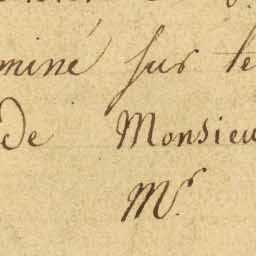 miné sur le
de Monsieu
Mr.